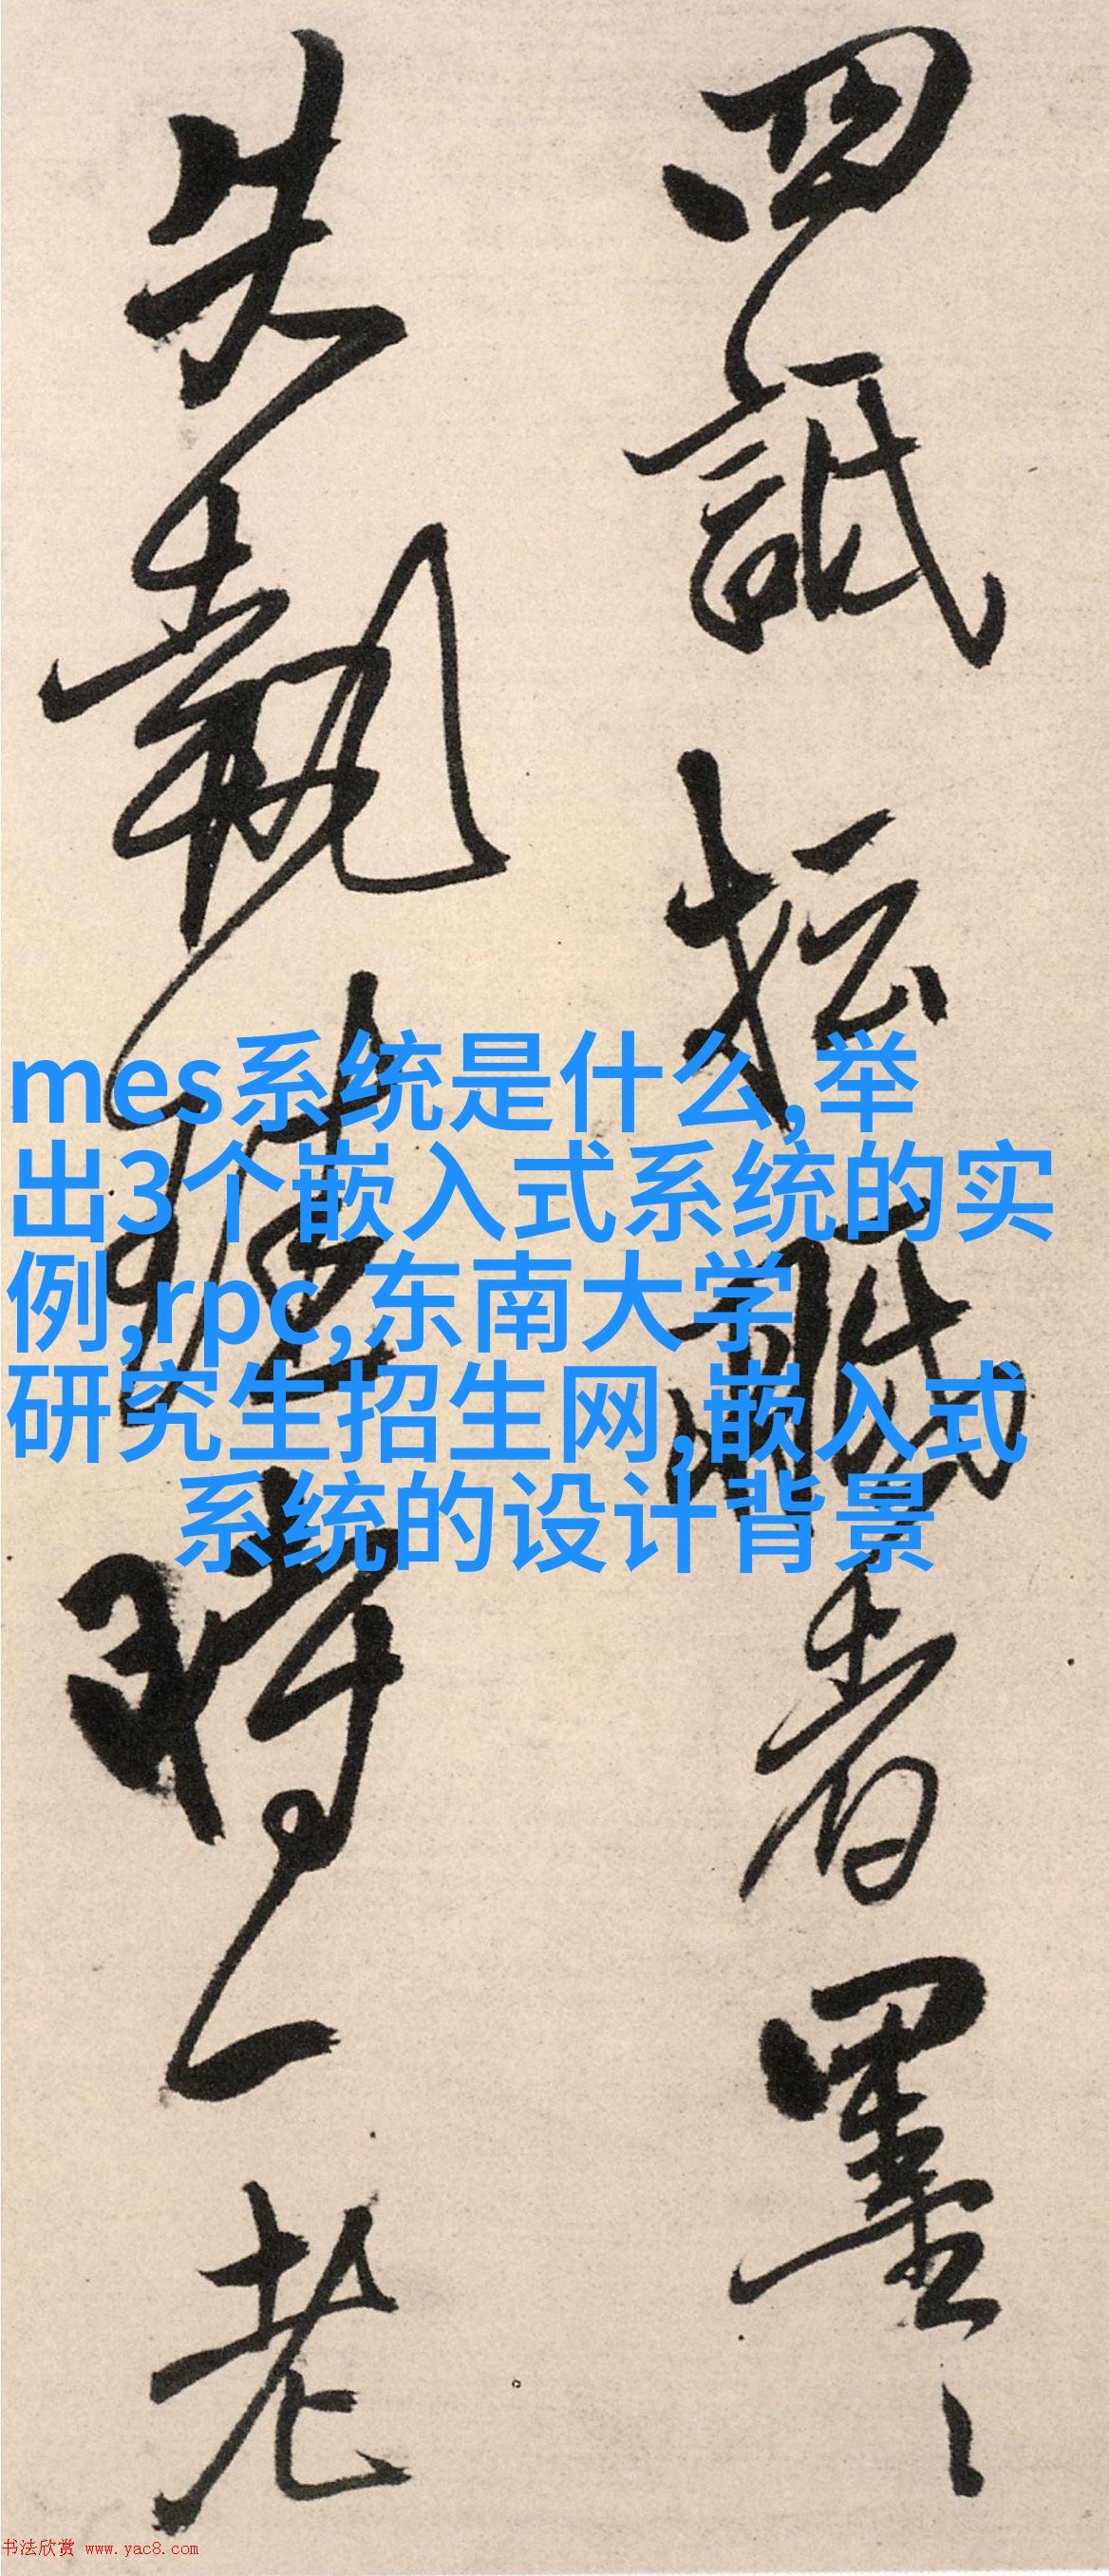 四詆坛
者墨
失執
時一老
mes系统是什么,举
出3个嵌入式系统的实
例,rpc,东南大学
研究生招生网,嵌入式
系统的设计背景
书法欣赏 www.yac8.com